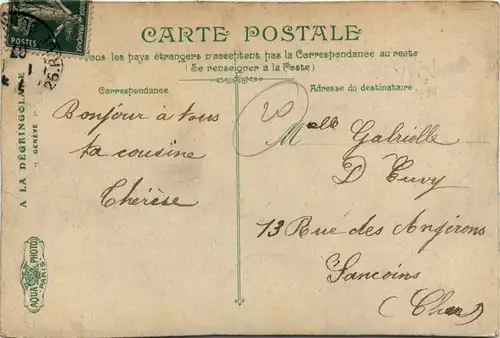 CARTE POSTALE
Tous les pays étrangers n'acceptent pas la Correspondance au recto
(Se renseigner à la Poste)
Correspondance
Adresse du destinataire
POSTES
A LA DÉGRINGOLADE
GENÈVE
AQUA PHOTO
PARIS
20
Bonjour à tous
ta cousine
Thérèse
Melle Gabrielle
D Cuvy
13 Rue des Angirons
Sancoins
(Cher)